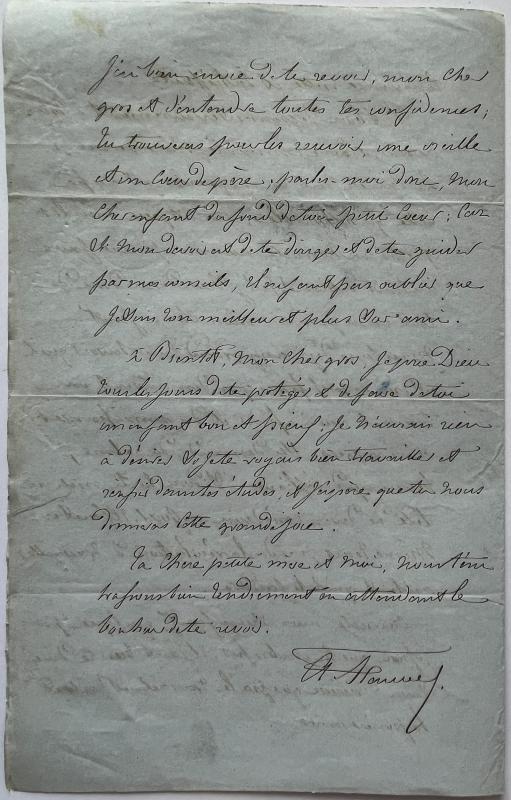 J'ai bien envie de te revoir, mon cher
gros et d'entendre toutes tes confidences;
tu trouveras pour les recevoir, une oreille
et un Coeur de père, parles-moi donc, mon
cher enfant du fond de ton petit Coeur; Car
si mon devoir est de te diriger et de te guider
par mes conseils, il ne faut pas oublier que
je suis ton meilleur et plus sur ami.
à Bientôt, mon cher gros, je prie Dieu
tous les jours de te protéger & de faire de toi
un enfant bon et pieux; je n'aurais rien
à désirer si je te voyais bien travailler et
réussir dans tes études, et j'espère que tu nous
donneras cette grande joie.
Ta chere petite mere et moi, nous t'em
brassons bien tendrement en attendant le
bonheur de te revoir.